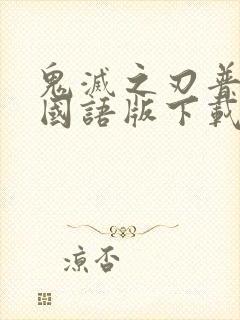 鬼滅之刃普
國語版下載
涼否